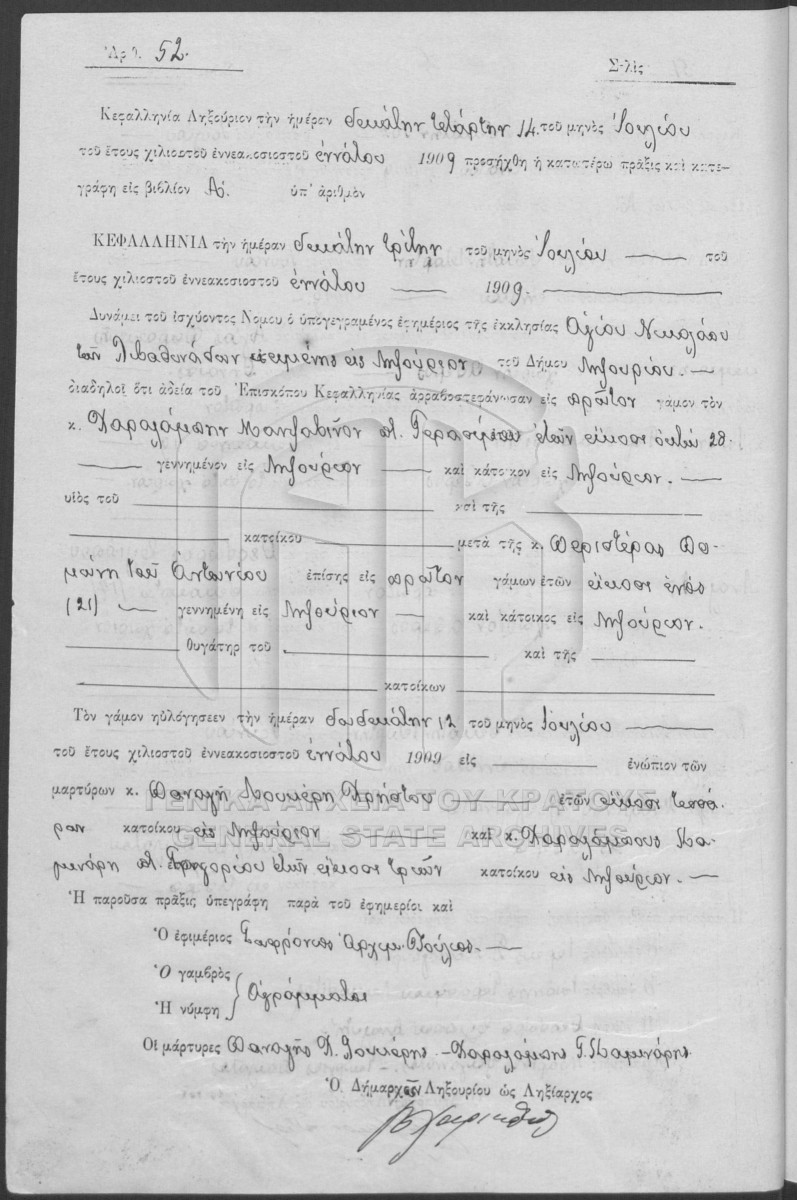 Ἀρθ. 52.
Σελὶς
Κεφαλληνία Ληξούριον τὴν ἡμέραν δεκάτην τετάρτην 14. τοῦ μηνὸς Ἰουλίου
τοῦ ἔτους χιλιοστοῦ ἐννεακοσιοστοῦ ἐννάτου 1909 προσήχθη ἡ κατωτέρω πρᾶξις καὶ κατε-
γράφη εἰς βιβλίον Α. ὑπ' ἀριθμὸν
ΚΕΦΑΛΛΗΝΙΑ τὴν ἡμέραν δεκάτην τρίτην τοῦ μηνὸς Ἰουλίου τοῦ
ἔτους χιλιοστοῦ ἐννεακοσιοστοῦ ἐννάτου 1909.
Δυνάμει τοῦ ἰσχύοντος Νομου ὁ ὑπογεγραμένος ἐφημέριος τῆς ἐκκλησίας Ἁγίου Νικολάου
τῶν κειμένης εἰς Ληξούριον τοῦ Δήμου Ληξουρίου.
διαδηλοῖ ὅτι ἀδεία τοῦ Ἐπισκόπου Κεφαλληνίας ἀρραβοστεφάνωσαν εἰς πρῶτον γάμον τὸν
κ. Χαραλάμπην Γερασίμου ἐτῶν εἴκοσι ὀκτὼ 28.
γεννημένον εἰς Ληξούριον καὶ κάτοικον εἰς Ληξούριον.
υἱὸς τοῦ καὶ τῆς
κατοίκου μετὰ τῆς κ. Περιστέρας
τοῦ Ἀντωνίου ἐπίσης εἰς πρῶτον γάμων ἐτῶν εἴκοσι ἑνὸς
(21) γεννημένη εἰς Ληξούριον καὶ κάτοικος εἰς Ληξούριον.
θυγάτηρ τοῦ καὶ τῆς
κατοίκων
Τὸν γάμον ηὐλόγησεεν τὴν ἡμέραν δωδεκάτην 12 τοῦ μηνὸς Ἰουλίου
τοῦ ἔτους χιλιοστοῦ ἐννεακοσιοστοῦ ἐννάτου 1909 εἰς ἐνώπιον τῶν
μαρτύρων κ. Παναγῆ Λουκέρη Χρήστου ἐτῶν εἴκοσι τεσσά-
ρων κατοίκου εἰς Ληξούριον καὶ κ. Χαραλάμπους Κα-
μινάρη Γρηγορίου ἐτῶν εἴκοσι τριῶν κατοίκου εἰς Ληξούριον.
Ἡ παροῦσα πρᾶξις ὑπεγράφη παρὰ τοῦ ἐφημερίοι καὶ
Ὁ ἐφιμέριος Σωφρόνιος Ἀρχιμ.
Ὁ γαμβρὸς
Ἡ νύμφη
Ἀγράμματοι
Οἱ μάρτυρες Παναγῆς Χ. Λουκέρης - Χαραλάμπης Γ. Καμινάρης
Ὁ. Δήμαρχος Ληξουρίου ὡς Ληξίαρχος
ΓΕΝΙΚΑ ΑΡΧΕΙΑ ΤΟΥ ΚΡΑΤΟΥΣ
GENERAL STATE ARCHIVES